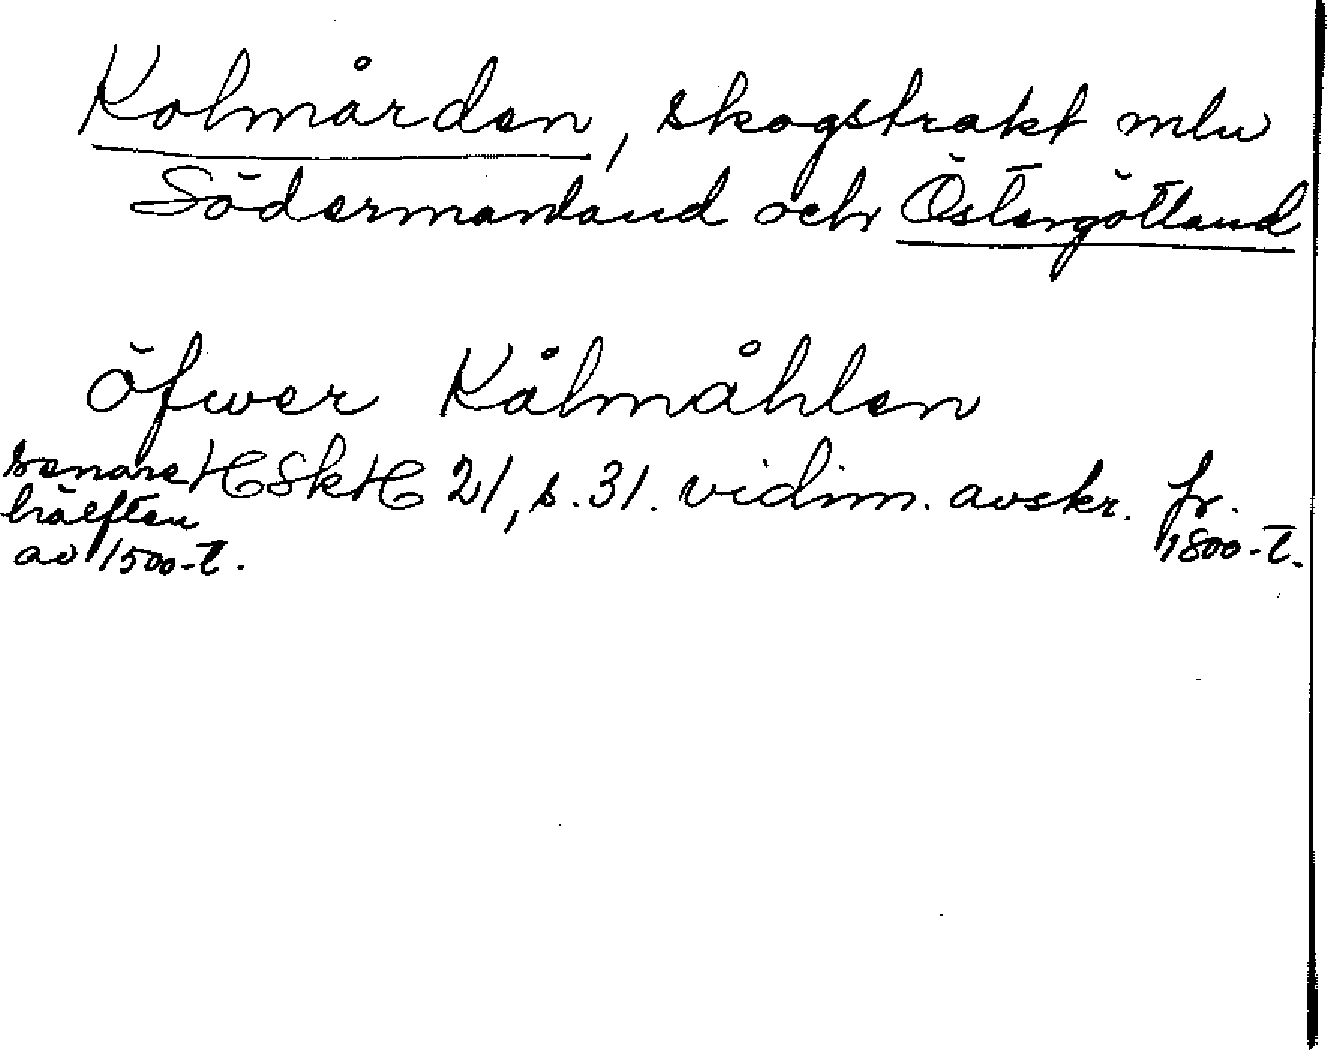 Kolmården, skogstrakt mlu
Södermanland och Östergötland
öfwer Kålmåhlen
senare HSkH 21, s. 31. vidim. avskr. fr.
hälften
av 1500-t.
1800-t.